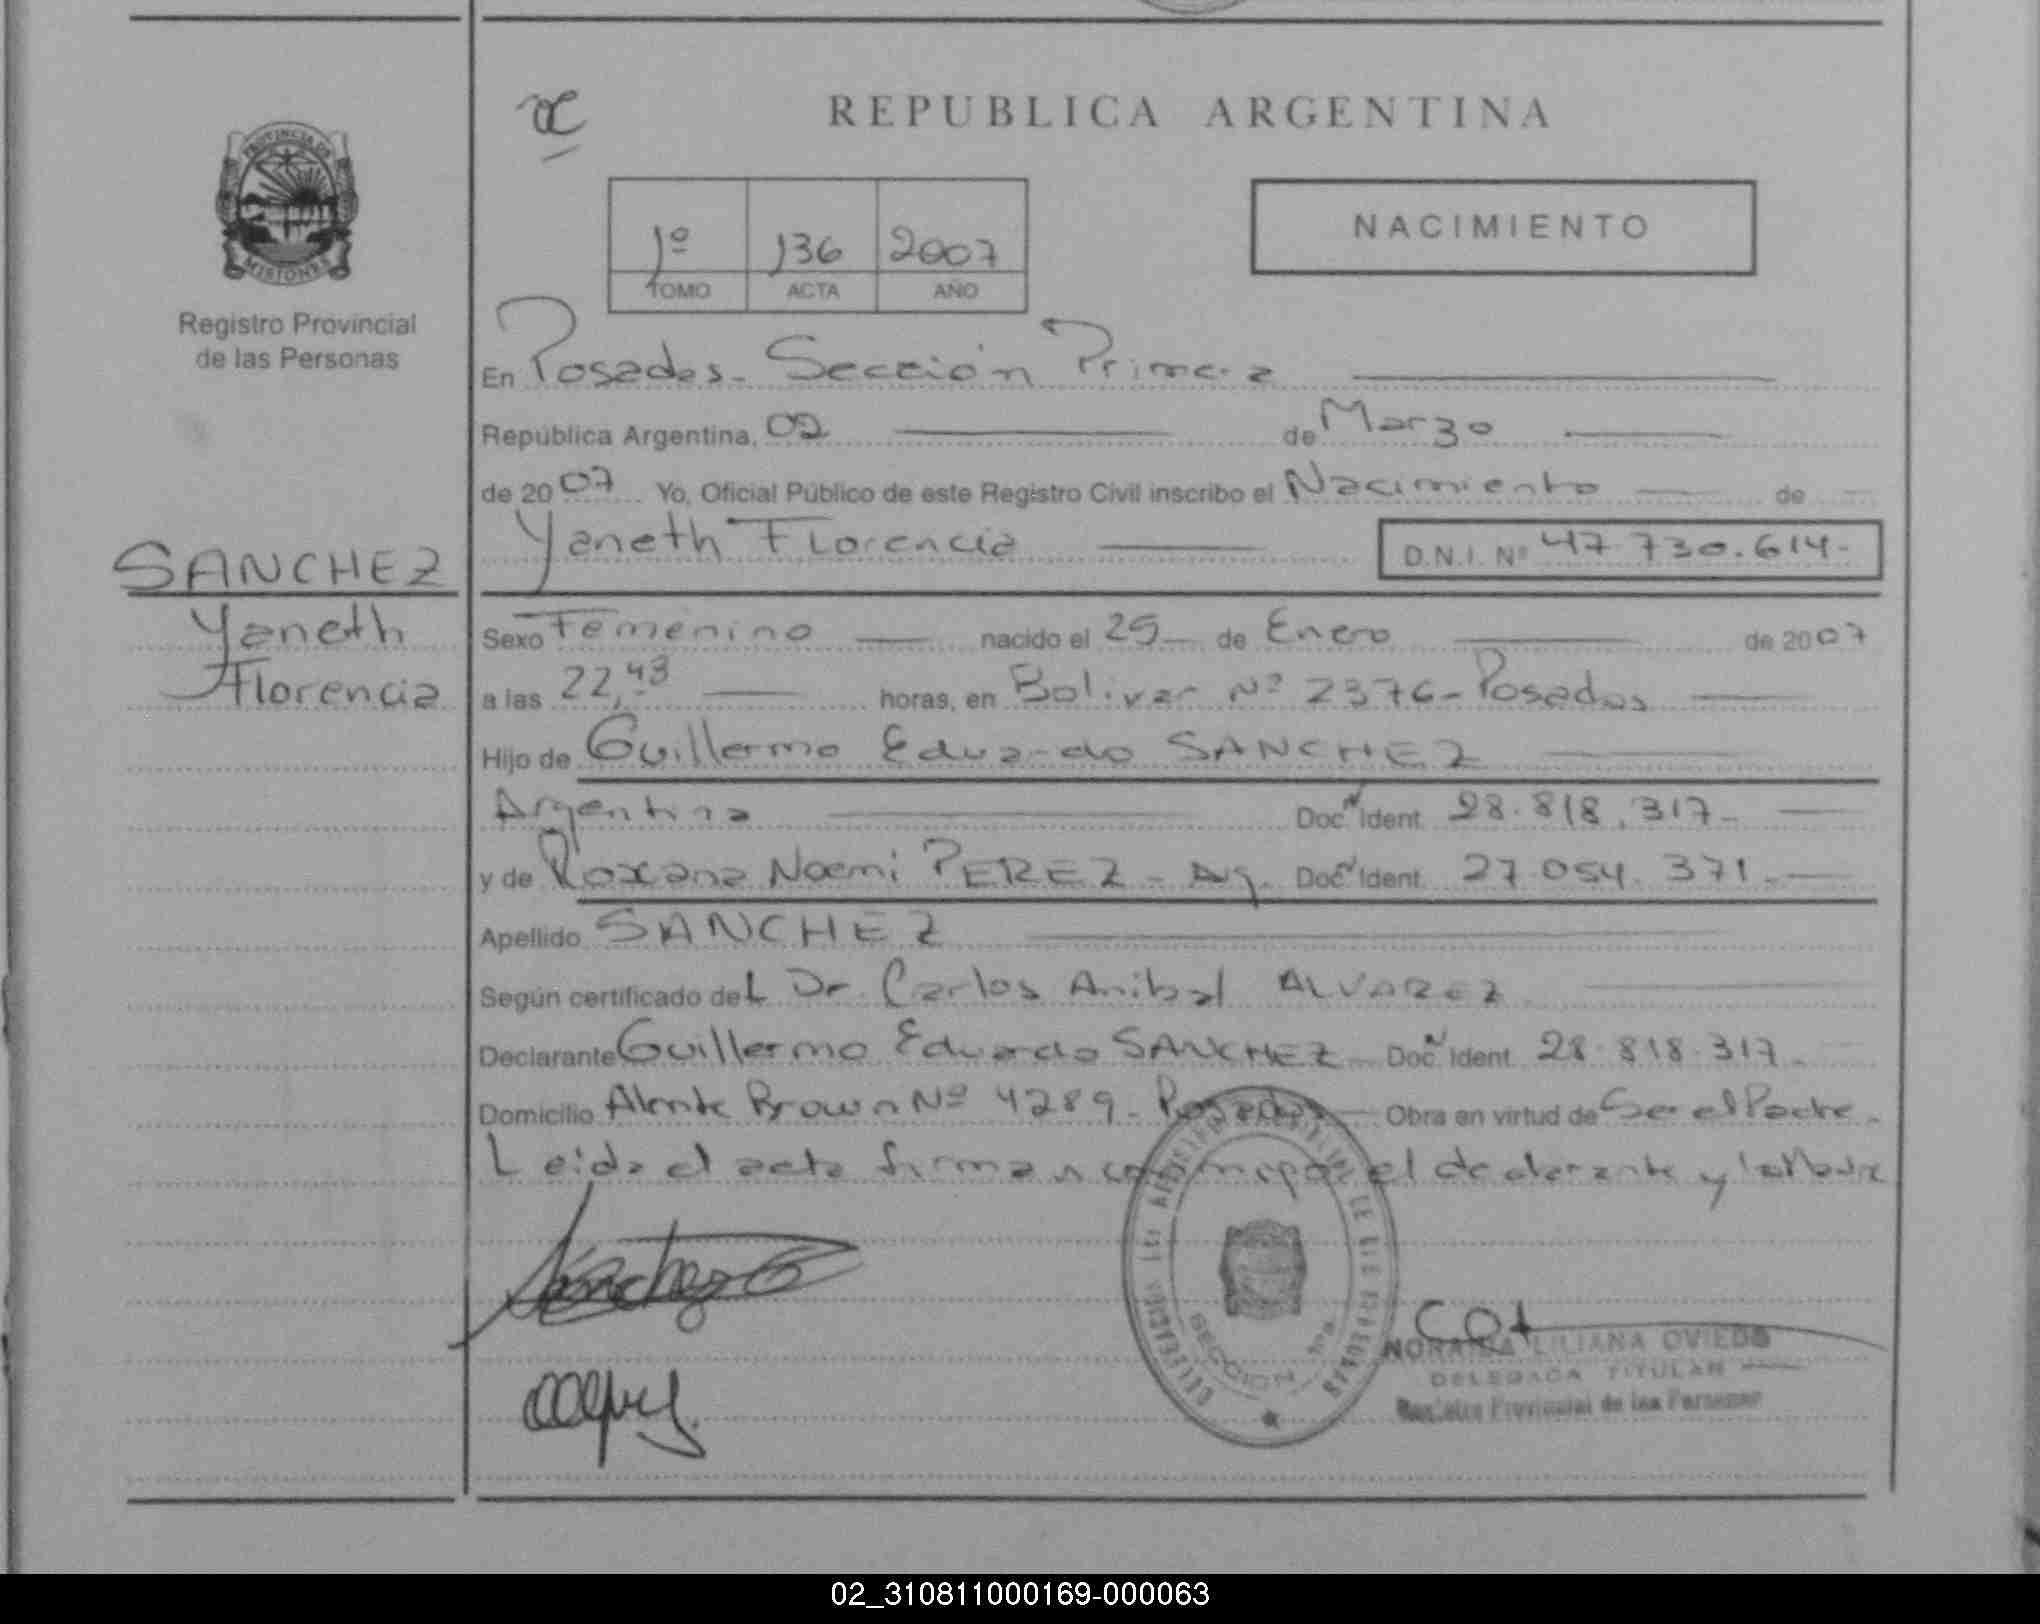 REPUBLICA ARGENTINA
PROVINCIA DE
MISIONES
Registro Provincial
de las Personas
1º 136 2007
TOMO ACTA AÑO
NACIMIENTO
En Posadas- Sección Primera
República Argentina, 02 de Marzo
de 2007 Yo, Oficial Público de este Registro Civil inscribo el Nacimiento de
Yaneth Florencia D.N.I. Nº 47.730.614-
SANCHEZ
Yaneth
Florencia
Sexo Femenino nacido el 25 de Enero de 2007
a las 22,43 horas, en Bolivar Nº 2376- Posadas
Hijo de Guillermo Eduardo SANCHEZ
Argentina Doc. Ident. 28.818.317-
y de Roxana Noemi PEREZ - Arg. Doc. Ident. 27.054.371.-
Apellido SANCHEZ
Según certificado del Dr. Carlos Anibal ALVAREZ
Declarante Guillermo Eduardo SANCHEZ Doc. Ident. 28.818.317-
Domicilio Almte Brown Nº 4289- Posadas Obra en virtud de Ser el Padre-
Leida el acta firman conmigo el declarante y la Madre
Sanchez G
SECCION 1ra.
LILIANA OVIEDO
DELEGADA TITULAR
Registro Provincial de las Personas
02_310811000169-000063